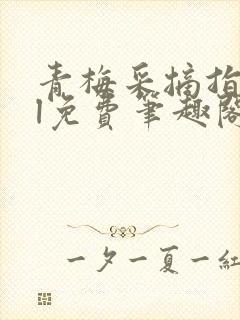 青梅采摘指
l免费笔趣阁
一夕一夏一紅